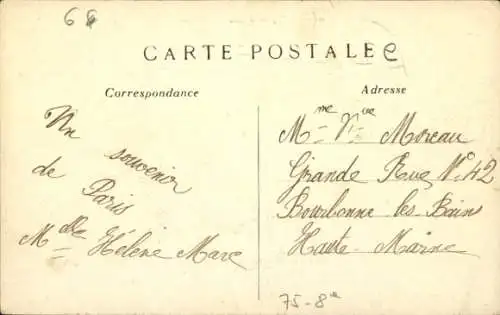 68
CARTE POSTALE e
Correspondance
Un souvenir
de Paris
Mlle Hélène Mare
Adresse
Mme Vve Moreau
Grande Rue No 42
Bourbonne les Bains
Haute Marne
75-8e